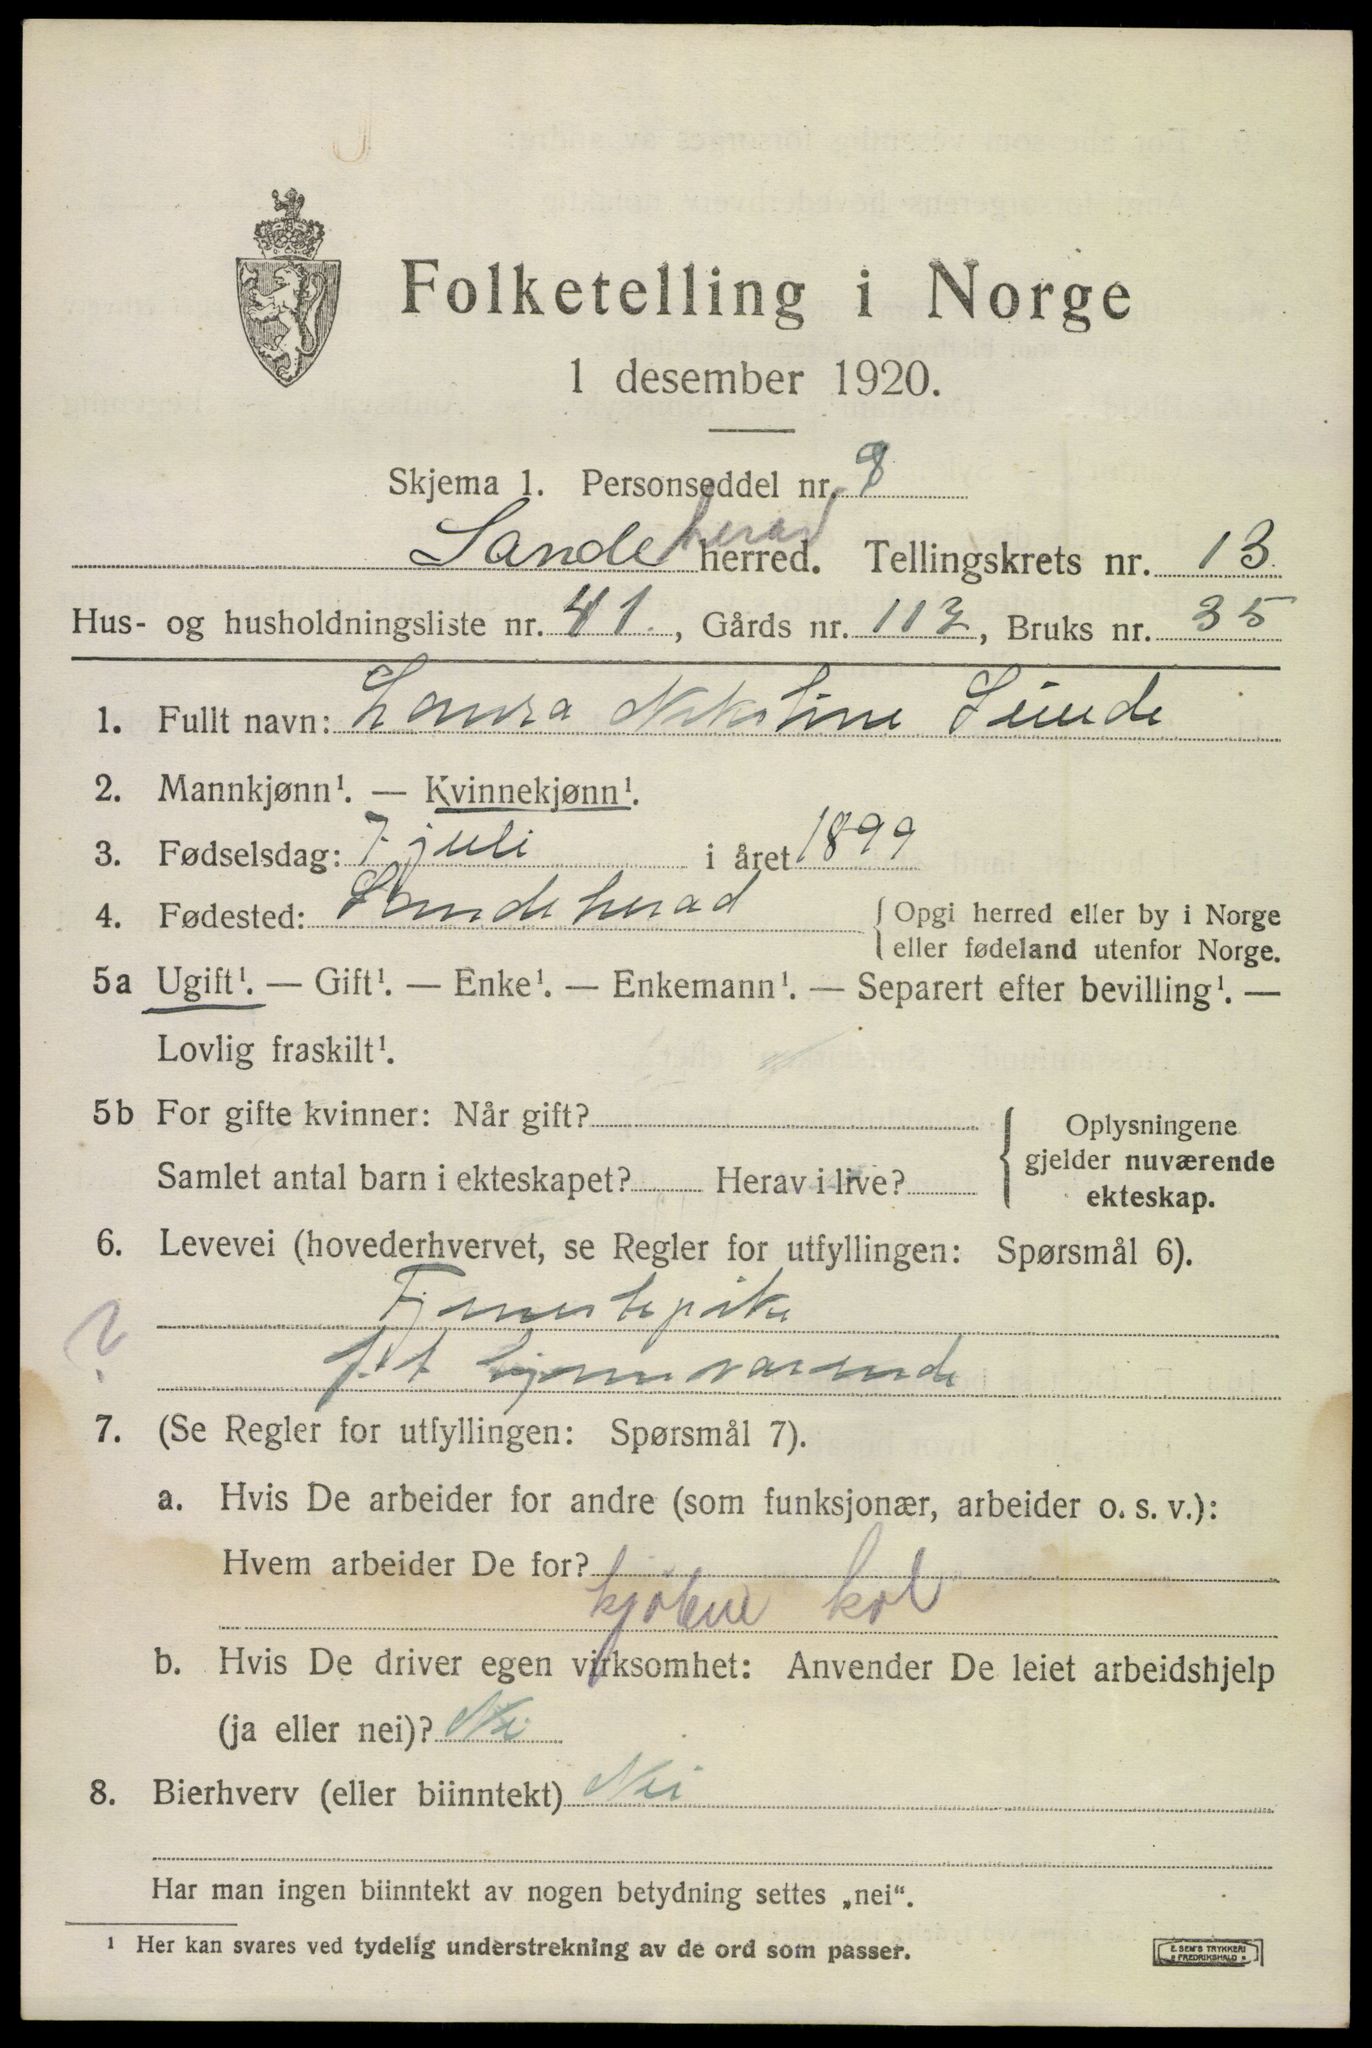 Folketelling i Norge
1 desember 1920.
Skjema 1. Personseddel nr. 8
herad
Sande herred. Tellingskrets nr. 13
Hus- og husholdningsliste nr. 41, Gårds nr. 113, Bruks nr. 35
1. Fullt navn: Laura Nikoline
2. Mannkjønn¹. — Kvinnekjønn¹.
3. Fødselsdag: 7 juli i året 1899
4. Fødested: Sandeherad {Opgi herred eller by i Norge
eller fødeland utenfor Norge.
5a Ugift¹. — Gift¹. — Enke¹. — Enkemann¹. — Separert efter bevilling¹. —
Lovlig fraskilt¹.
5b For gifte kvinner: Når gift? Oplysningene
gjelder nuværende
Samlet antal barn i ekteskapet? Herav i live? ekteskap.
6. Levevei (hovederhvervet, se Regler for utfyllingen: Spørsmål 6).
Tjenestepike
? f.t hjemmeværende
7. (Se Regler for utfyllingen: Spørsmål 7).
a. Hvis De arbeider for andre (som funksjonær, arbeider o. s. v.):
Hvem arbeider De for?
b. Hvis De driver egen virksomhet: Anvender De leiet arbeidshjelp
(ja eller nei)? Nei
8. Bierhverv (eller biinntekt) Nei
Har man ingen biinntekt av nogen betydning settes „nei“.
¹ Her kan svares ved tydelig understrekning av de ord som passer.
E. SEM'S TRYKKERI
FREDRIKSHALD